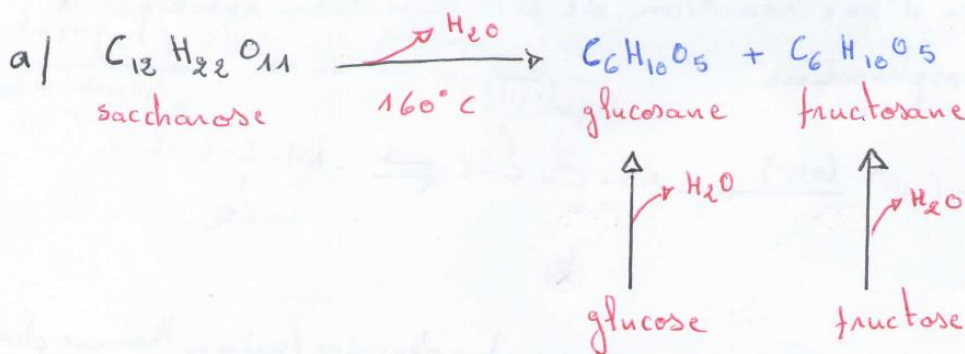 H₂O
a| C₁₂ H₂₂ O₁₁ → C₆H₁₀O₅ + C₆ H₁₀ O₅
saccharose 160°C glucosane fructosane
H₂O H₂O
glucose fructose